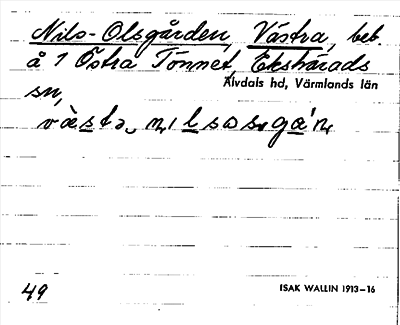 Nils-Olsgården, Västra, beb.
å 1 Östra Tönnet, Ekshärads
sn, Älvdals hd, Värmlands län
49 ISAK WALLIN 1913-16